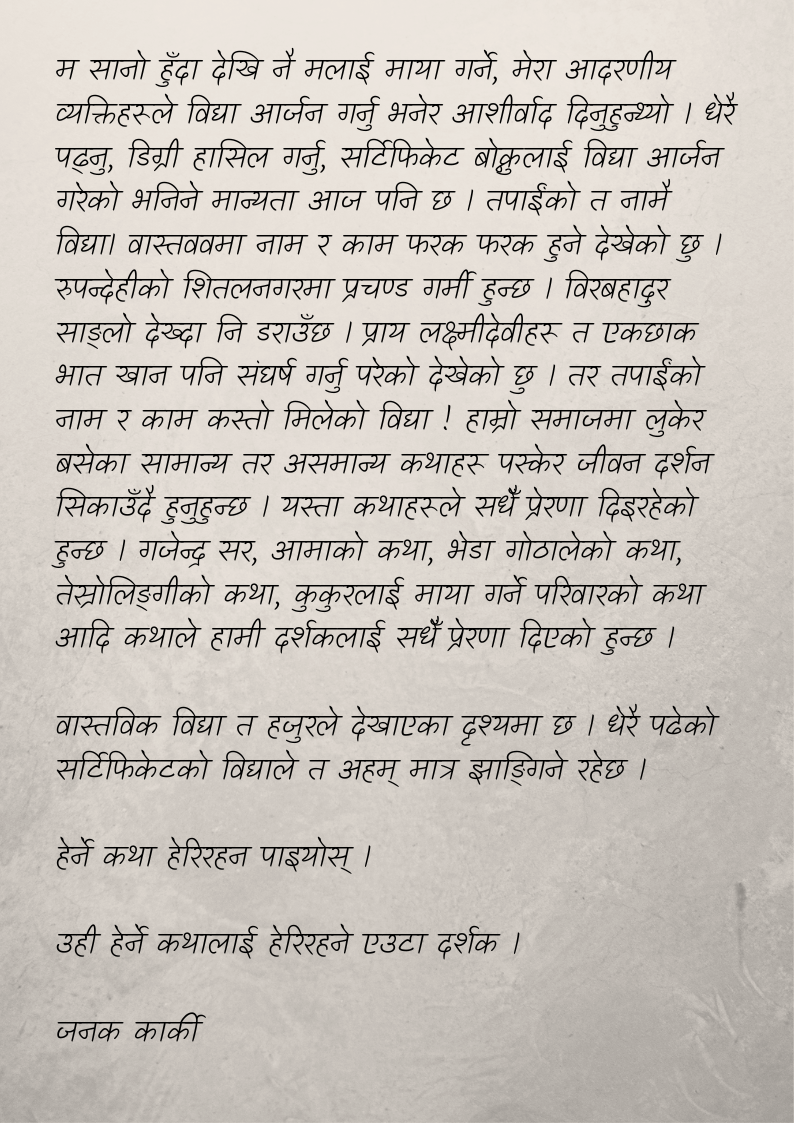 म सानो हुँदा देखि नै मलाई माया गर्ने, मेरा आदरणीय
व्यक्तिहरुले विद्या आर्जन गर्नु भनेर आशीर्वाद दिनुहुन्थ्यो । धेरै
पढ्नु, डिग्री हासिल गर्नु, सर्टिफिकेट बोक्नुलाई विद्या आर्जन
गरेको भनिने मान्यता आज पनि छ । तपाईंको त नामै
विद्या। वास्तववमा नाम र काम फरक फरक हुने देखेको छु ।
रुपन्देहीको शितलनगरमा प्रचण्ड गर्मी हुन्छ । विरबहादुर
साङ्लो देख्दा नि डराउँछ । प्राय लक्ष्मीदेवीहरु त एकछाक
भात खान पनि संघर्ष गर्नु परेको देखेको छु । तर तपाईंको
नाम र काम कस्तो मिलेको विद्या ! हाम्रो समाजमा लुकेर
बसेका सामान्य तर असमान्य कथाहरु पस्केर जीवन दर्शन
सिकाउँदै हुनुहुन्छ । यस्ता कथाहरुले सधैँ प्रेरणा दिइरहेको
हुन्छ । गजेन्द्र सर, आमाको कथा, भेडा गोठालेको कथा,
तेस्रोलिङ्गीको कथा, कुकुरलाई माया गर्ने परिवारको कथा
आदि कथाले हामी दर्शकलाई सधैँ प्रेरणा दिएको हुन्छ ।
वास्तविक विद्या त हजुरले देखाएका दृश्यमा छ । धेरै पढेको
सर्टिफिकेटको विद्याले त अहम् मात्र झाङ्गिने रहेछ ।
हेर्ने कथा हेरिरहन पाइयोस् ।
उही हेर्ने कथालाई हेरिरहने एउटा दर्शक ।
जनक कार्की